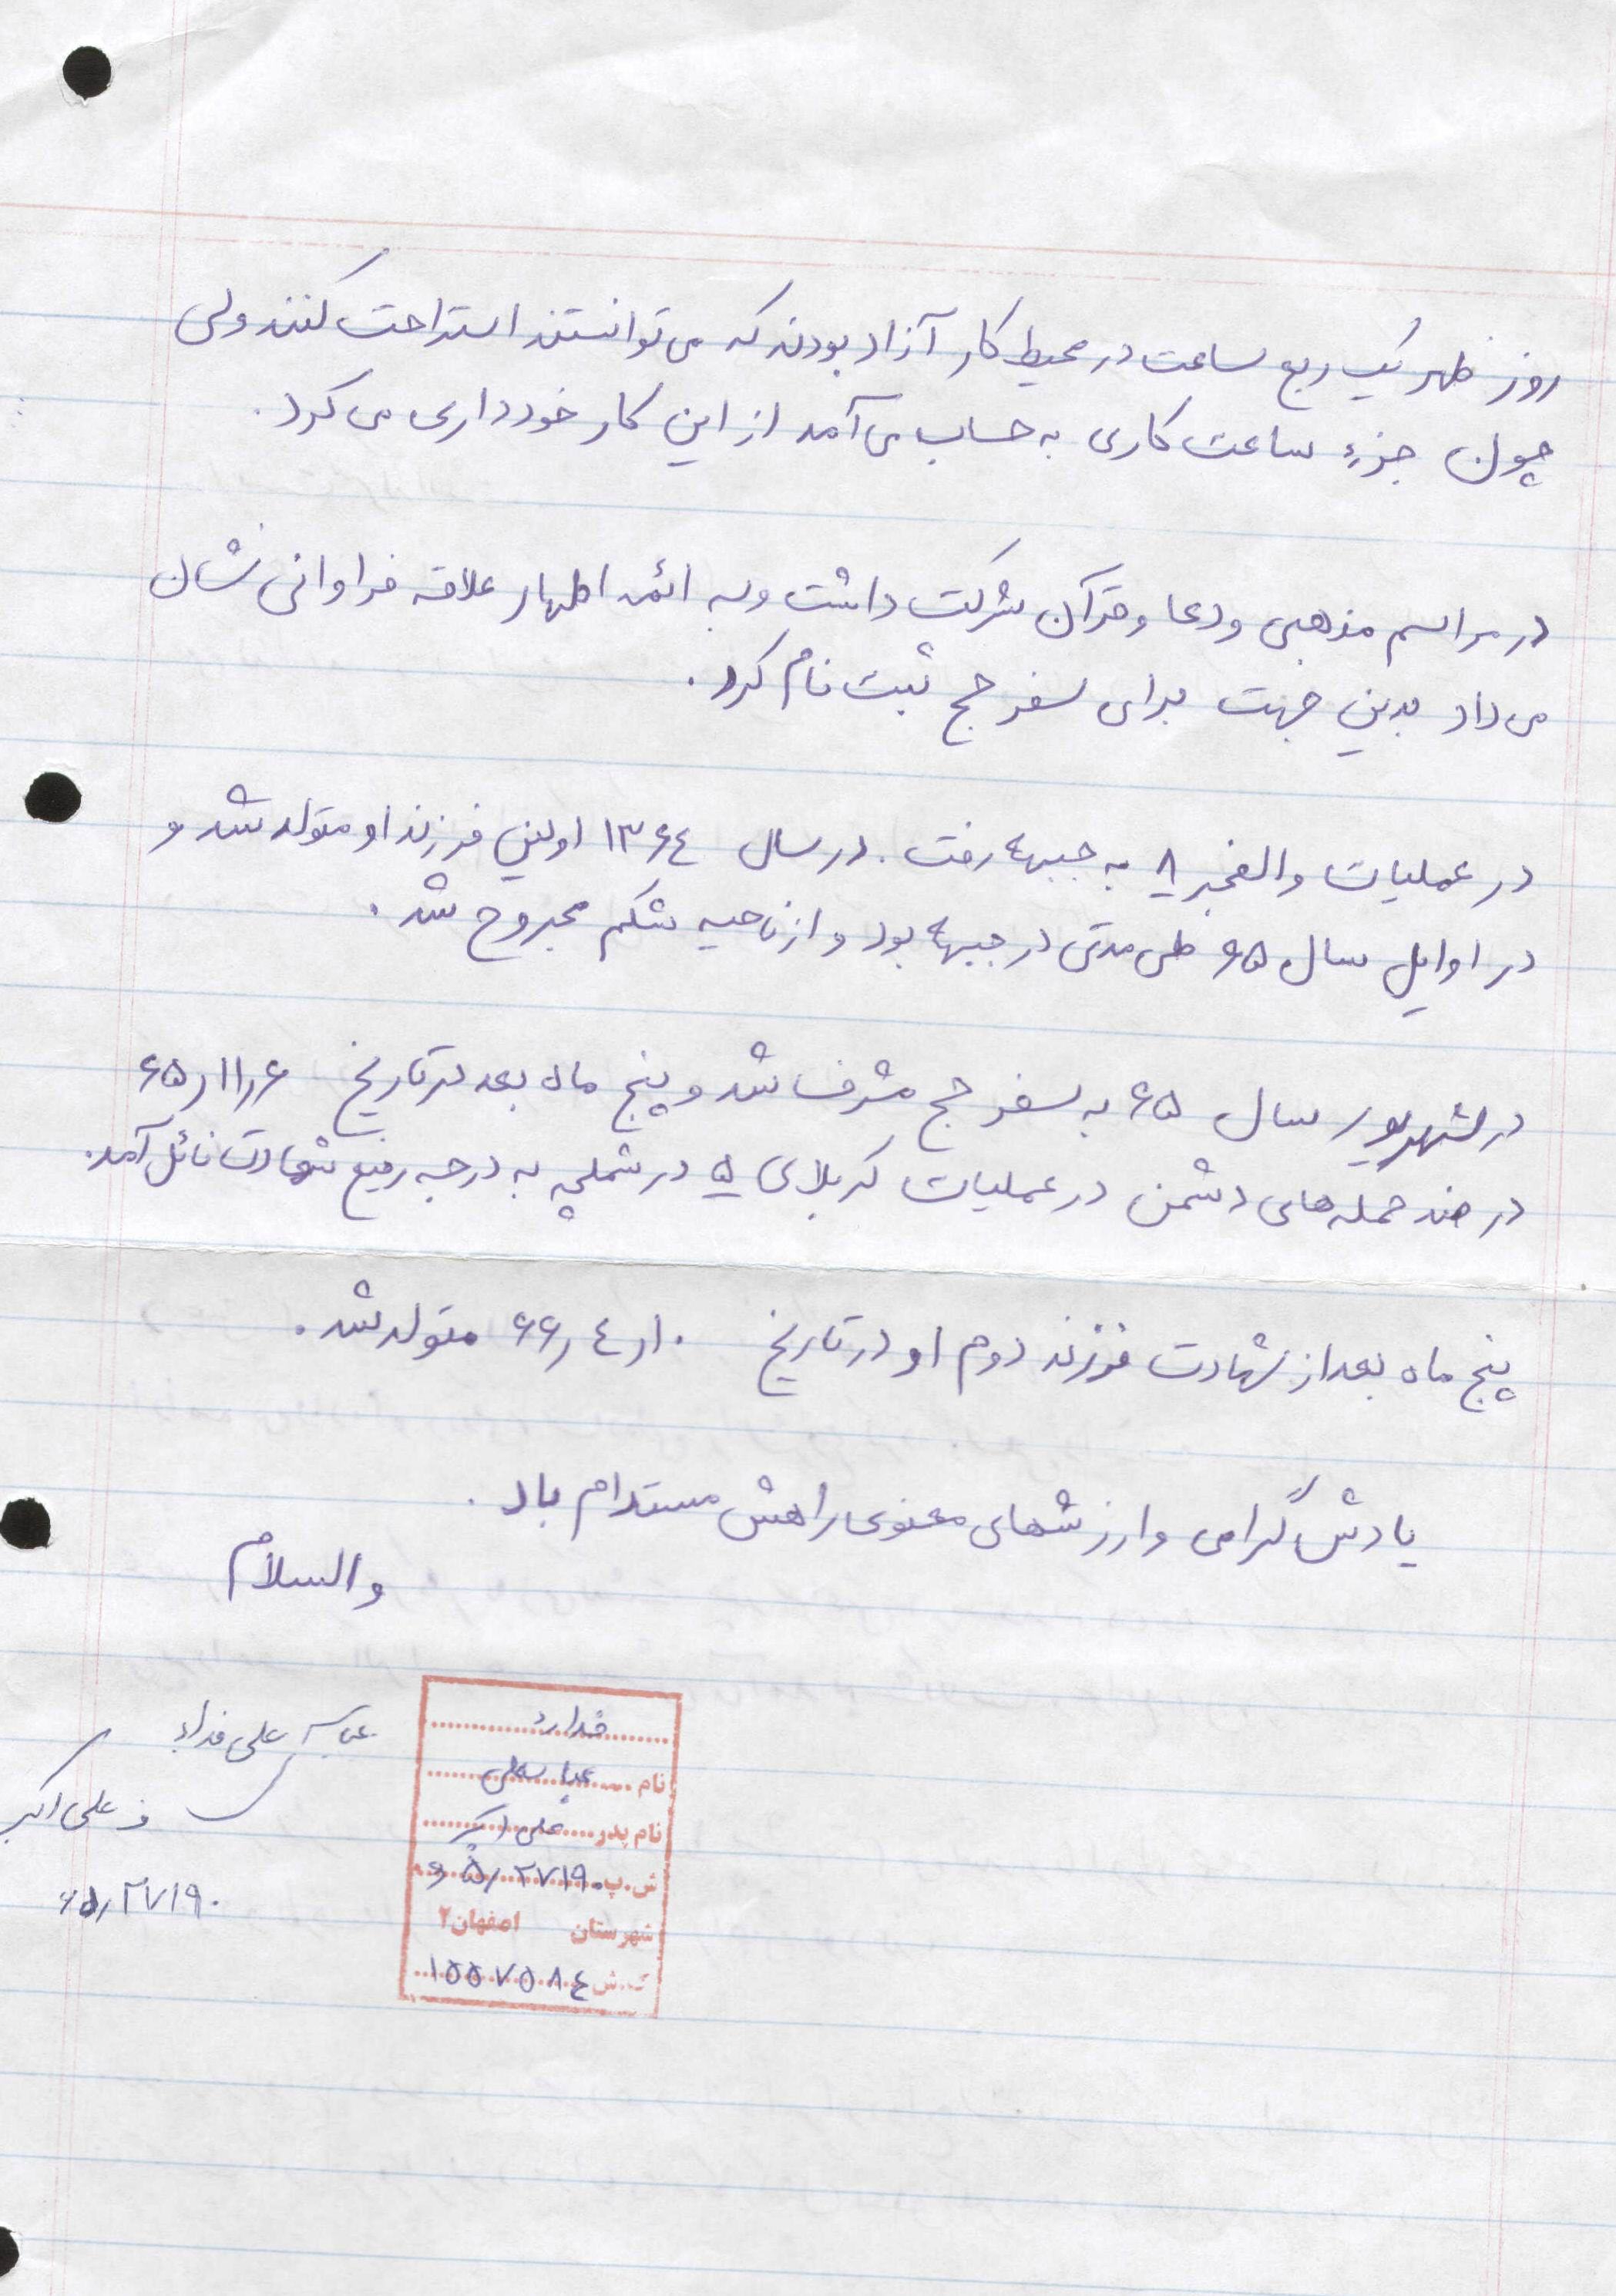 روز ظهر یک ربع ساعت در محیط کار آزاد بودند که می توانستند استراحت کنند ولی
چون جزء ساعت کاری به حساب می آمد از این کار خودداری می کرد.
در مراسم مذهبی و دعا و قرآن شرکت داشت و به ائمه اظهار علاقه فراوانی نشان
می داد بدین جهت برای سفر حج ثبت نام کرد.
در عملیات والفجر ۸ به جبهه رفت. در سال ۱۳۶۴ اولین فرزند او متولد شد و
در اوایل سال ۶۵ طی مدتی در جبهه بود و از ناحیه شکم مجروح شد.
در شهریور سال ۶۵ به سفر حج مشرف شد و پنج ماه بعد در تاریخ ۶۵٫۱۱٫۶
در ضد حمله های دشمن در عملیات کربلای ۵ در شملچه به درجه رفیع شهادت نائل آمد.
پنج ماه بعد از شهادت فرزند دوم او در تاریخ ۶۶٫۴٫۱۰ متولد شد.
یادش گرامی و ارزشهای معنوی راهش مستدام باد.
والسلام
عباس علی فدائی
ف علی اکبر
۶۵٫۲۷۱۹۰
نام عباسعلی
نام پدر علی اکبر
ش.پ ۶۵٫۲۷۱۹۰
شهرستان اصفهان ۲
ک.ش ۱۵۵۷۵۸۴